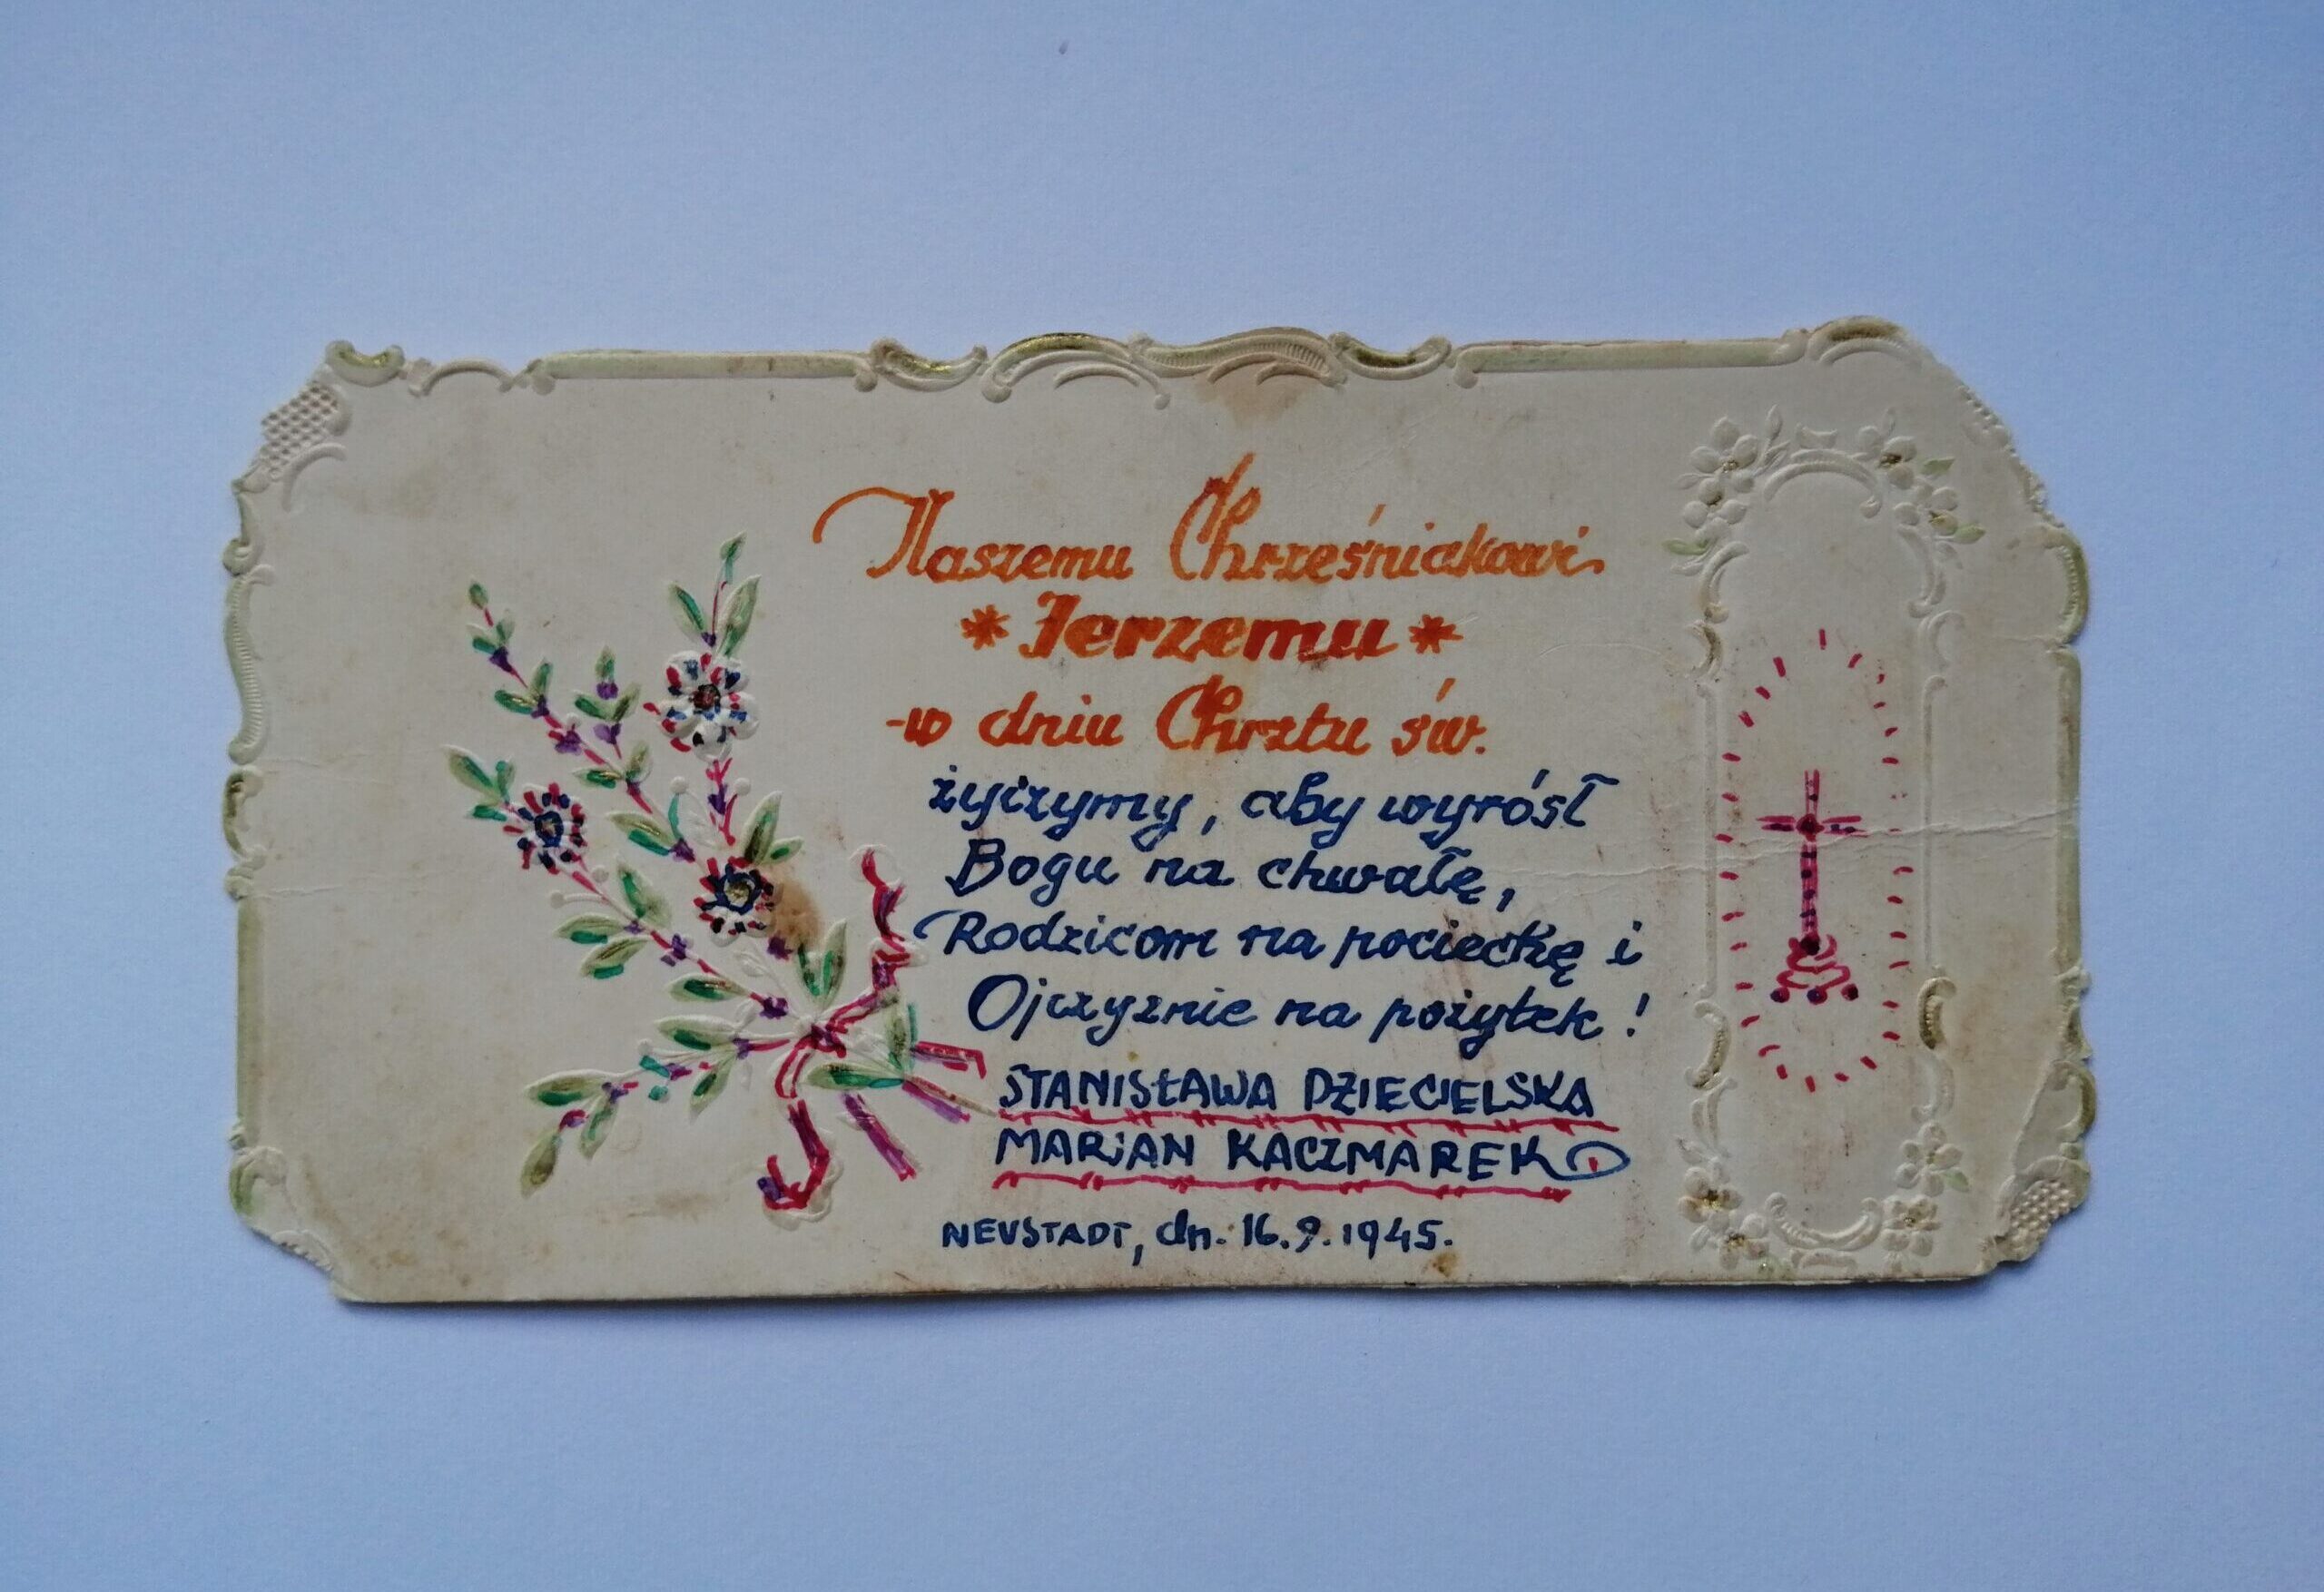 Naszemu Chrześniakowi
* Jerzemu *
- w dniu Chrztu św.
życzymy, aby wyrósł
Bogu na chwałę,
Rodzicom na pociechę i
Ojczyznie na pożytek!
STANISŁAWA DZIECIELSKA
MARIAN KACZMAREK
NEUSTADT, dn. 16.9.1945.